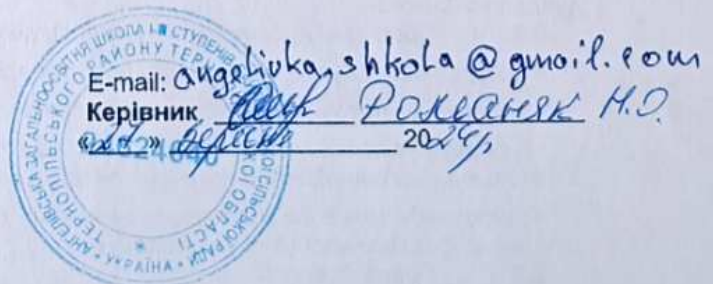 E-mail: angelivka.shkola@gmail.com
Керівник Романяк Н.О.
«27» вересня 2024р.
АНГЕЛІВСЬКА ЗАГАЛЬНООСВІТНЯ ШКОЛА І-ІІ СТУПЕНІВ
СЬКОГО РАЙОНУ ТЕРНОПІЛЬСЬКОЇ ОБЛАСТІ
УКРАЇНА